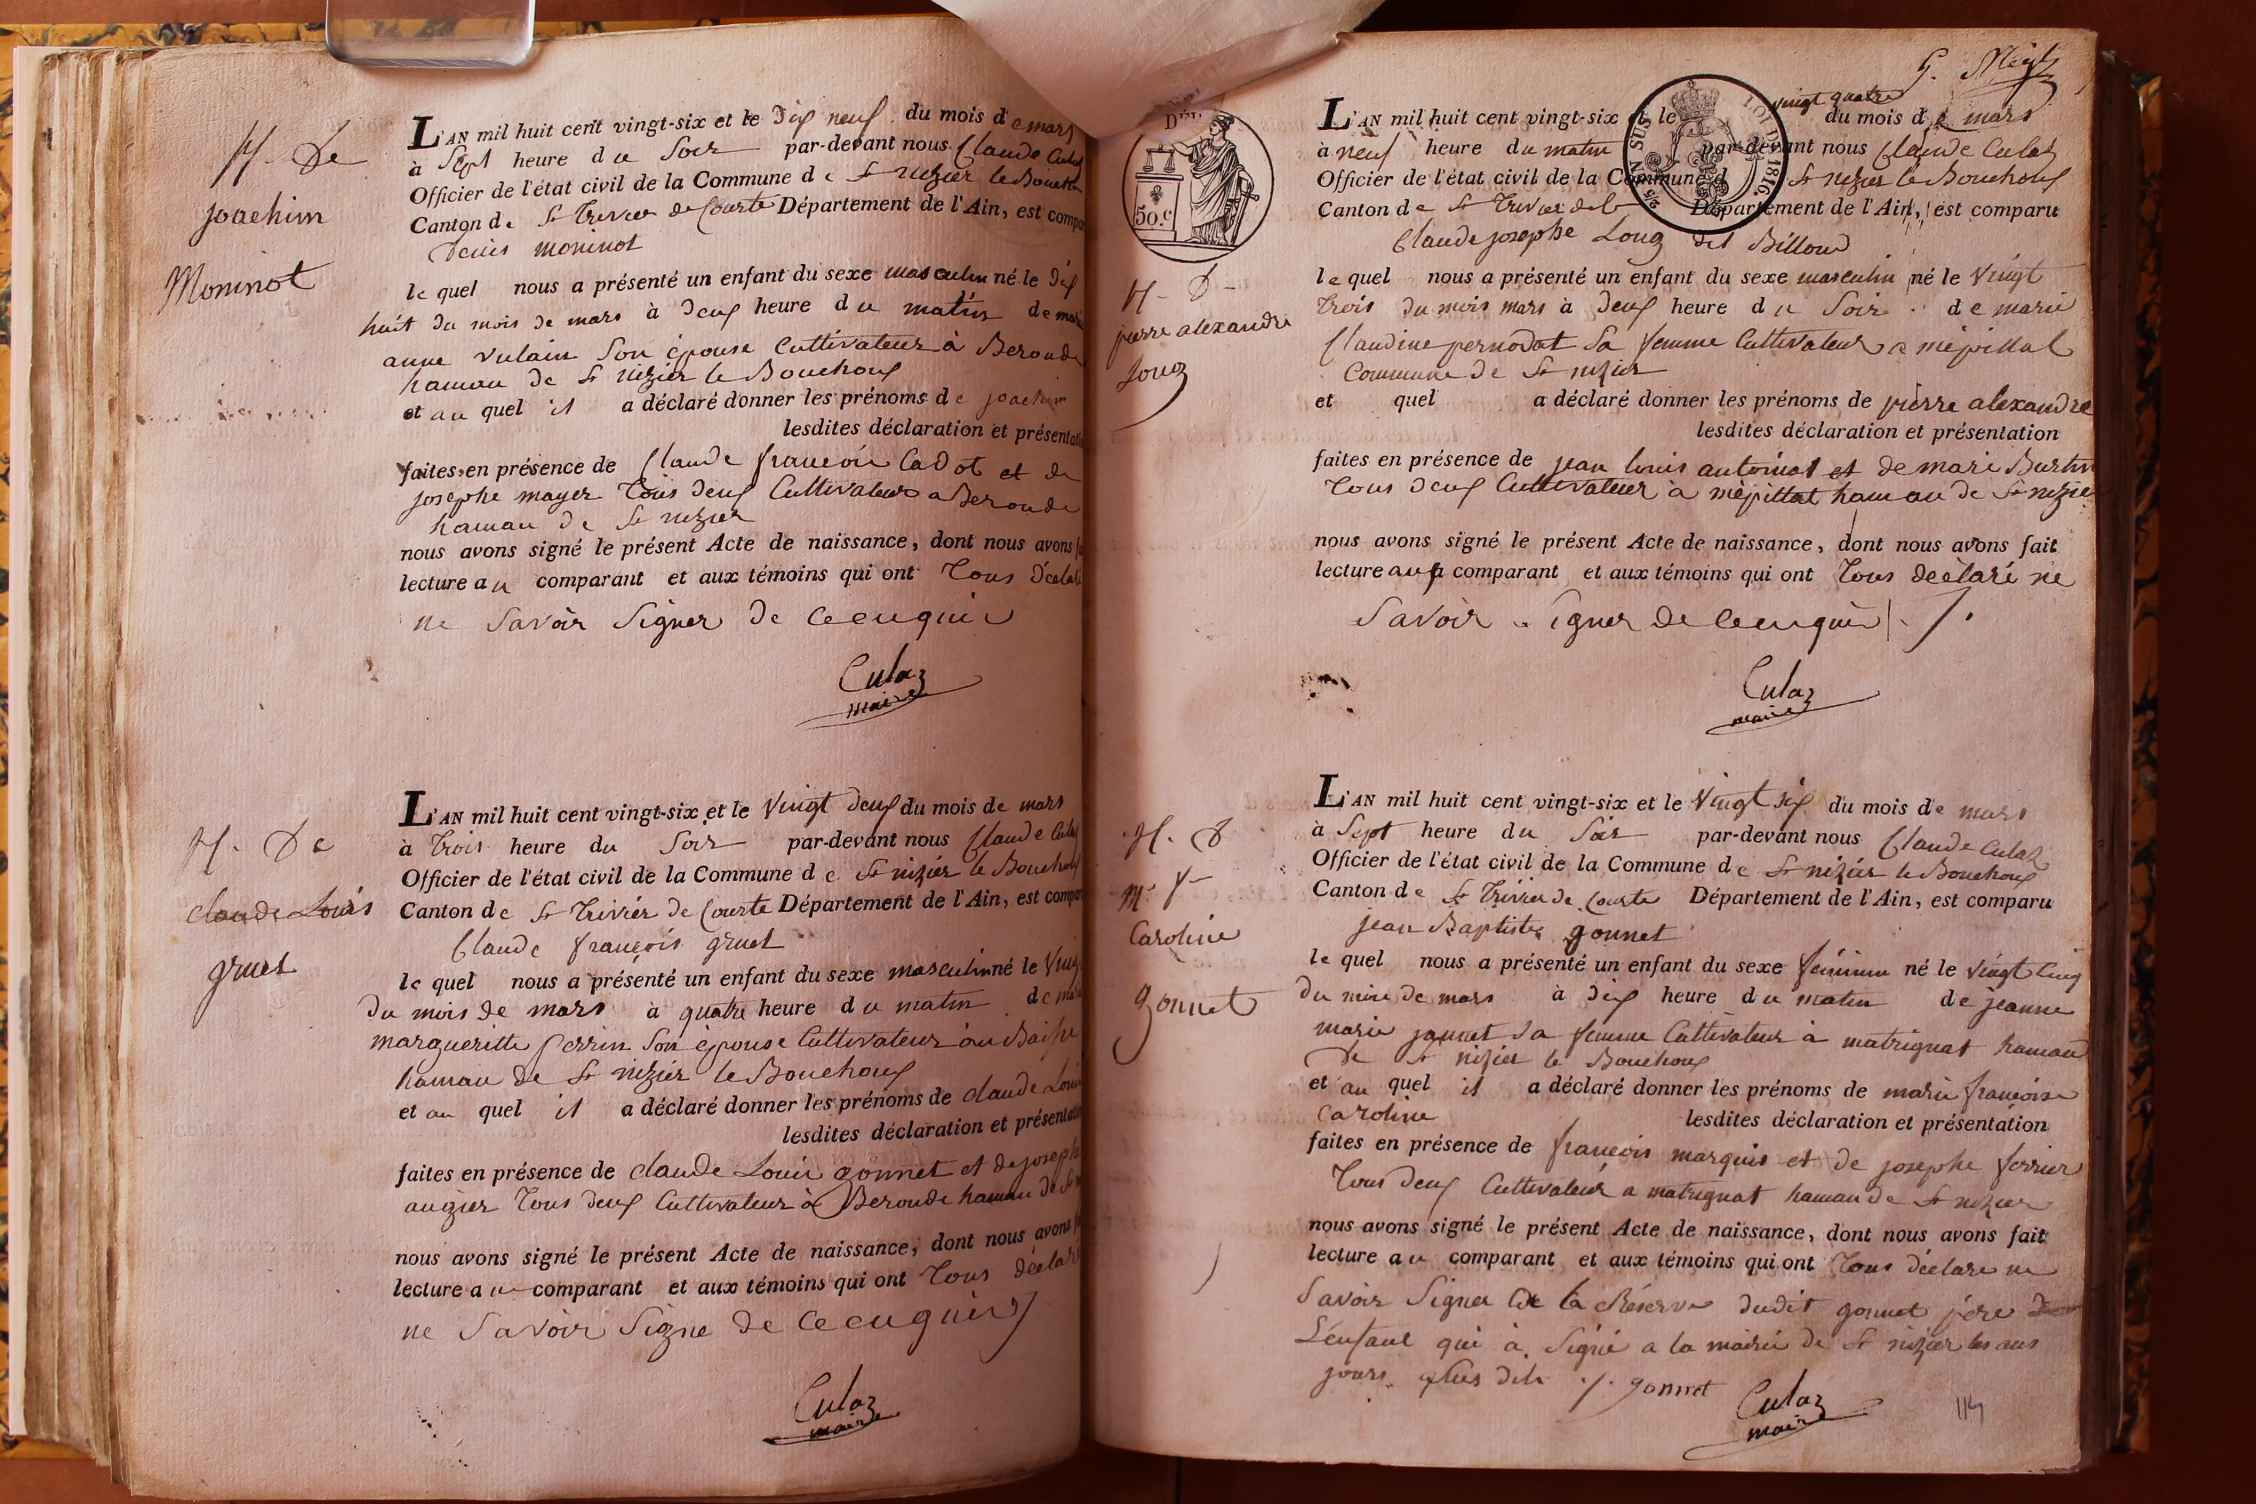 N. De
joachim
Moninot
L'AN mil huit cent vingt-six et le Dix neuf du mois de mars
à Sept heure du Soir par-devant nous Claude Culaz
Officier de l'état civil de la Commune de St nizier le Bouchoux
Canton de St Trivier de Courte Département de l'Ain, est compa
Denis moninot
le quel nous a présenté un enfant du sexe masculin né le dix
huit du mois de mars à deux heure du matin de marie
anne vulain Son épouse Cultivateur à Beroude
hamau de St nizier le Bouchoux
et au quel il a déclaré donner les prénoms de joachim
lesdites déclaration et présentati
faites en présence de Claude françois Cadot et de
josephe mayer Tous deux Cultivateur a Beroude
hamau de St nizier
nous avons signé le présent Acte de naissance, dont nous avons
lecture au comparant et aux témoins qui ont Tous déclaré
ne Savoir Signer de Ce enquis
Culaz
maire
N. De
claude Louis
gruet
L'AN mil huit cent vingt-six et le Vingt deux du mois de mars
à Trois heure du Soir par-devant nous Claude Culaz
Officier de l'état civil de la Commune de St nizier le Bouchoux
Canton de St Trivier de Courte Département de l'Ain, est compa
Claude françois gruet
le quel nous a présenté un enfant du sexe masculin né le Vingt
du mois de mars à quatre heure du matin de marie
margueritte perrin Son épouse Cultivateur au
hamau de St nizier le Bouchoux
et au quel il a déclaré donner les prénoms de claude Louis
lesdites déclaration et présentation
faites en présence de claude Louis gonnet et de joseph
augier Tous deux Cultivateur à Beroude hamau de St
nous avons signé le présent Acte de naissance, dont nous avons
lecture au comparant et aux témoins qui ont Tous déclaré
ne Savoir Signe de Ce enquis
Culaz
maire
50.c
N. D
pierre alexandre
Long
L'AN mil huit cent vingt-six et le vingt quatre du mois de mars
à neuf heure du matin par-devant nous Claude Culaz
Officier de l'état civil de la Commune d St nizier le Bouchoux
Canton de St Trivier de C Département de l'Ain, est comparu
LOI DE 1816.
Claude josephe Long dit Billoud
le quel nous a présenté un enfant du sexe masculin né le Vingt
trois du mois mars à deux heure du Soir de marie
Claudine pernodat Sa femme Cultivateur a mépillat
Commune de St nizier
et quel a déclaré donner les prénoms de pierre alexandre
lesdites déclaration et présentation
faites en présence de jean louis antoinat et de marie Burtin
Tous deux Cultivateur à mépillat hamau de St nizier
nous avons signé le présent Acte de naissance, dont nous avons fait
lecture aux comparant et aux témoins qui ont Tous déclaré ne
Savoir Signer de Ce enquis
Culaz
maire
N. D
Mie fse
Caroline
gonnet
L'AN mil huit cent vingt-six et le Vingt six du mois de mars
à Sept heure du Soir par-devant nous Claude Culaz
Officier de l'état civil de la Commune de St nizier le Bouchoux
Canton de St Trivier de Courte Département de l'Ain, est comparu
jean Baptiste gonnet
le quel nous a présenté un enfant du sexe féminin né le vingt Cinq
du mois de mars à dix heure du matin de jeanne
marie sa femme Cultivateur à matrignat hamau
de St nizier le Bouchoux
et au quel il a déclaré donner les prénoms de marie françoise
Caroline lesdites déclaration et présentation
faites en présence de françois marquis et de josephe ferrier
Tous deux Cultivateur a matrignat hamau de St nizier
nous avons signé le présent Acte de naissance, dont nous avons fait
lecture au comparant et aux témoins qui ont Tous déclaré ne
Savoir Signer à la Réserve dudit gonnet père de
L'enfant qui à Signé a la mairie de St nizier les ans
jours plus dits gonnet
Culaz
maire